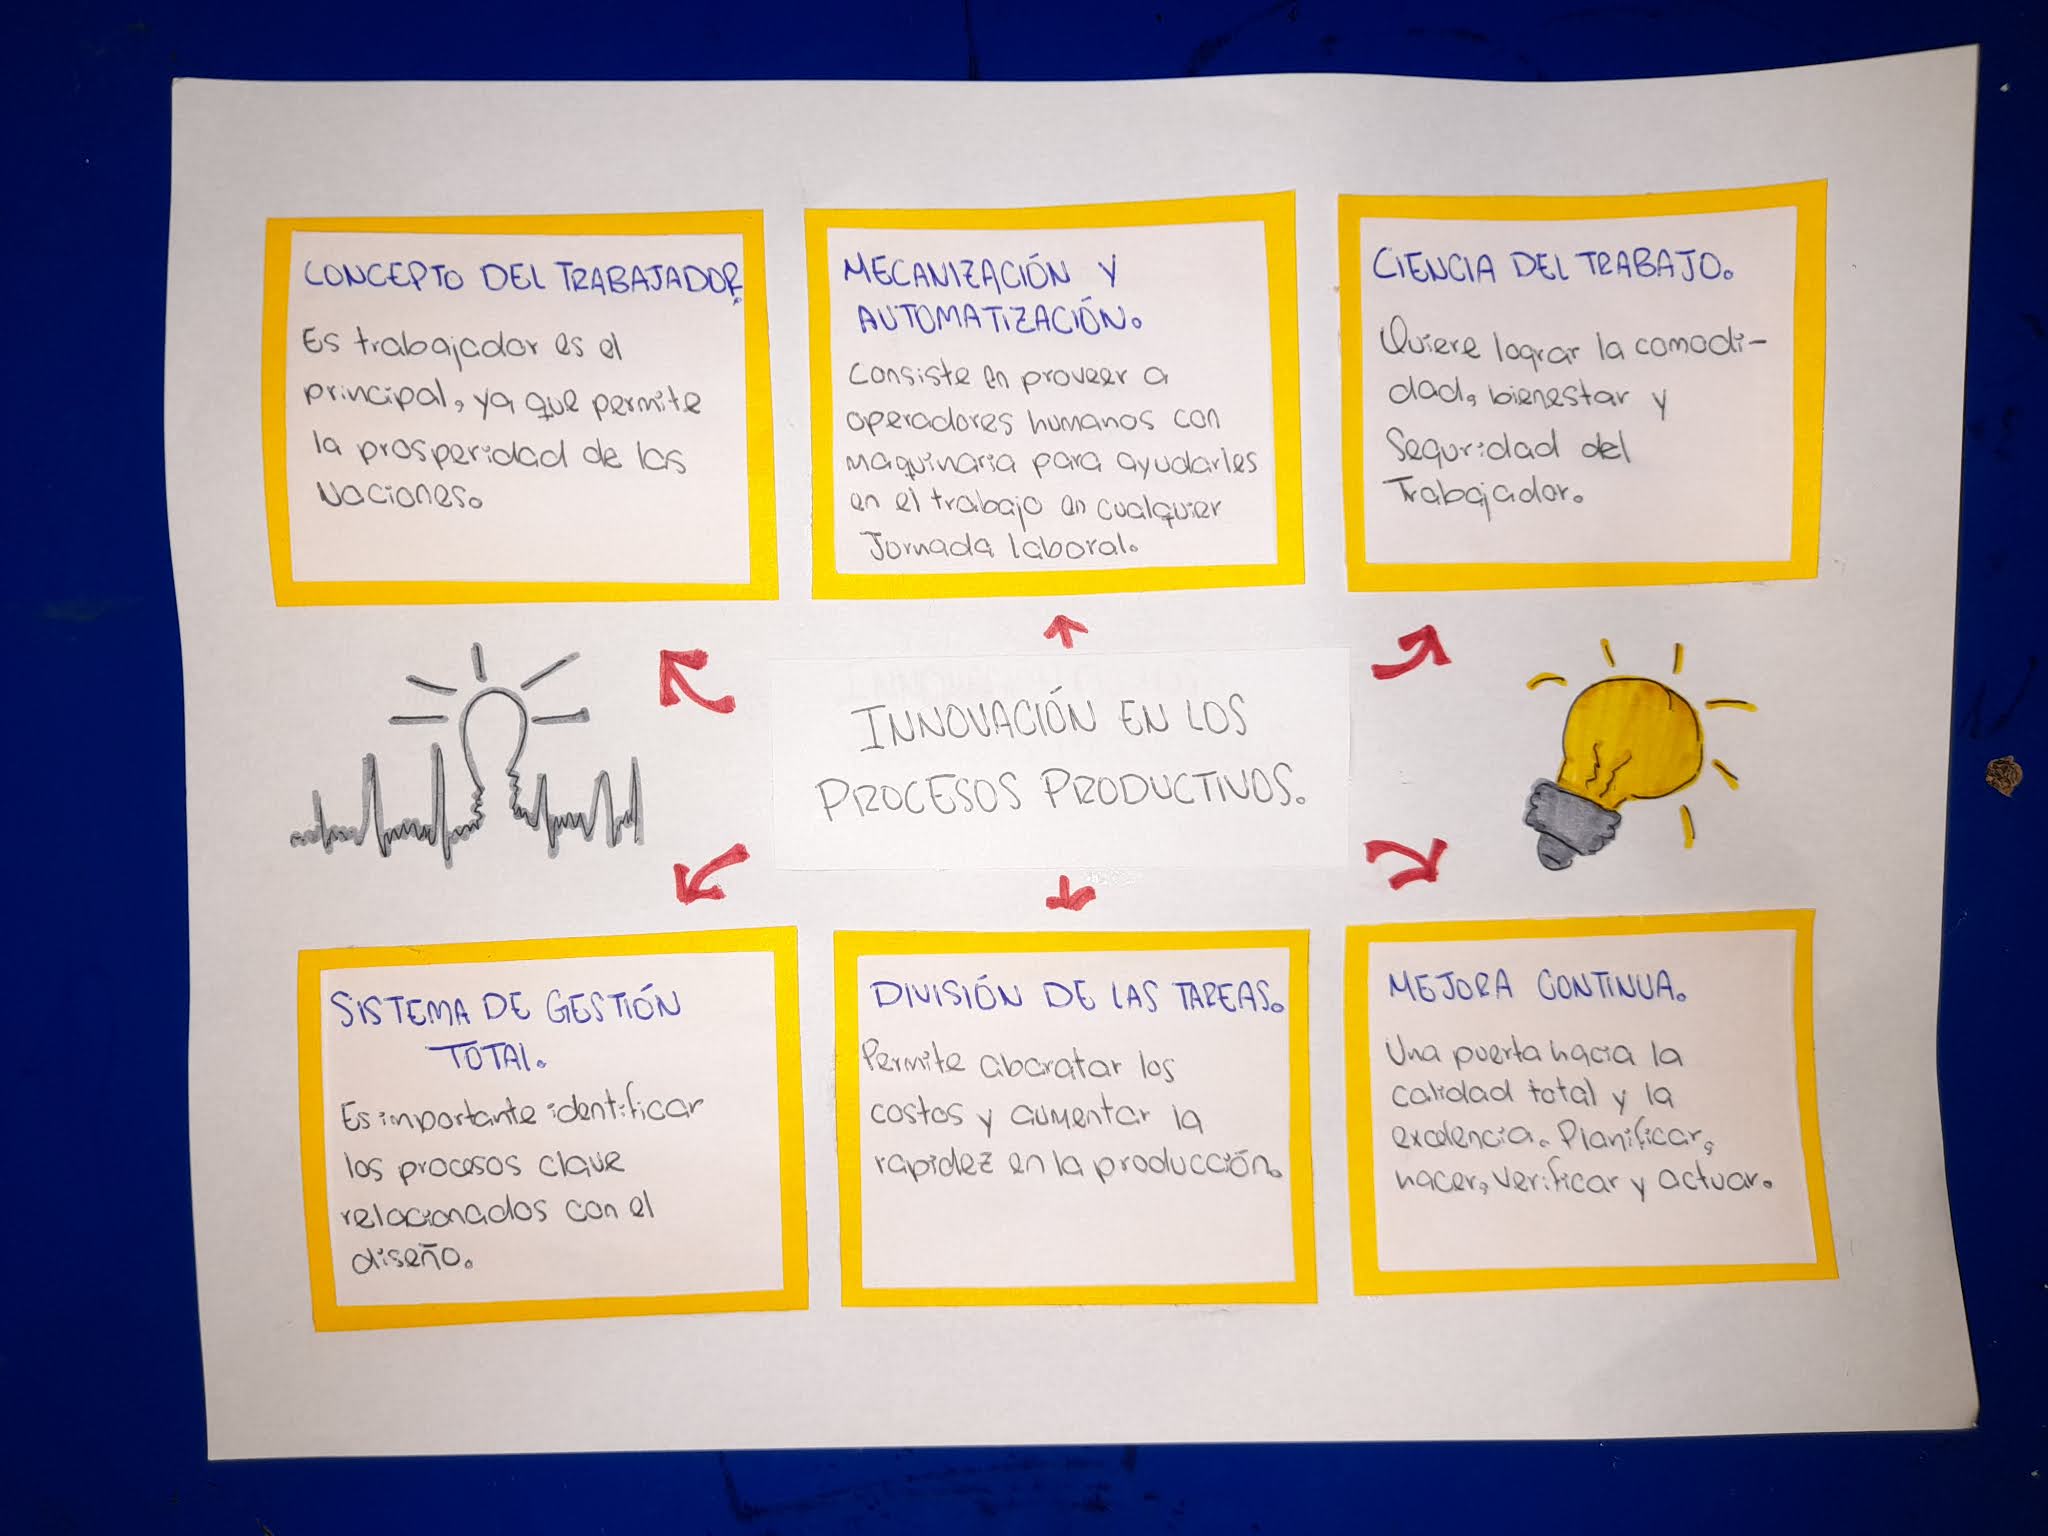 CONCEPTO DEL TRABAJADOR.
Es trabajador es el
principal, ya que permite
la prosperidad de las
Naciones.
MECANIZACIÓN Y
AUTOMATIZACIÓN.
Consiste en proveer a
operadores humanos con
maquinaria para ayudarles
en el trabajo en cualquier
Jornada laboral.
CIENCIA DEL TRABAJO.
Quiere lograr la comodi-
dad, bienestar y
Seguridad del
Trabajador.
INNOVACIÓN EN LOS
PROCESOS PRODUCTIVOS.
SISTEMA DE GESTIÓN
TOTAL.
Es importante identificar
los procesos clave
relacionados con el
diseño.
DIVISIÓN DE LAS TAREAS.
Permite abaratar los
costos y aumentar la
rapidez en la producción.
MEJORA CONTINUA.
Una puerta hacia la
calidad total y la
excelencia. Planificar,
hacer, verificar y actuar.